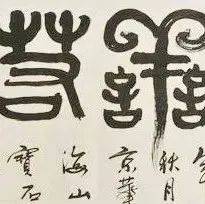 譱若
秋月
京華
海山
寶石